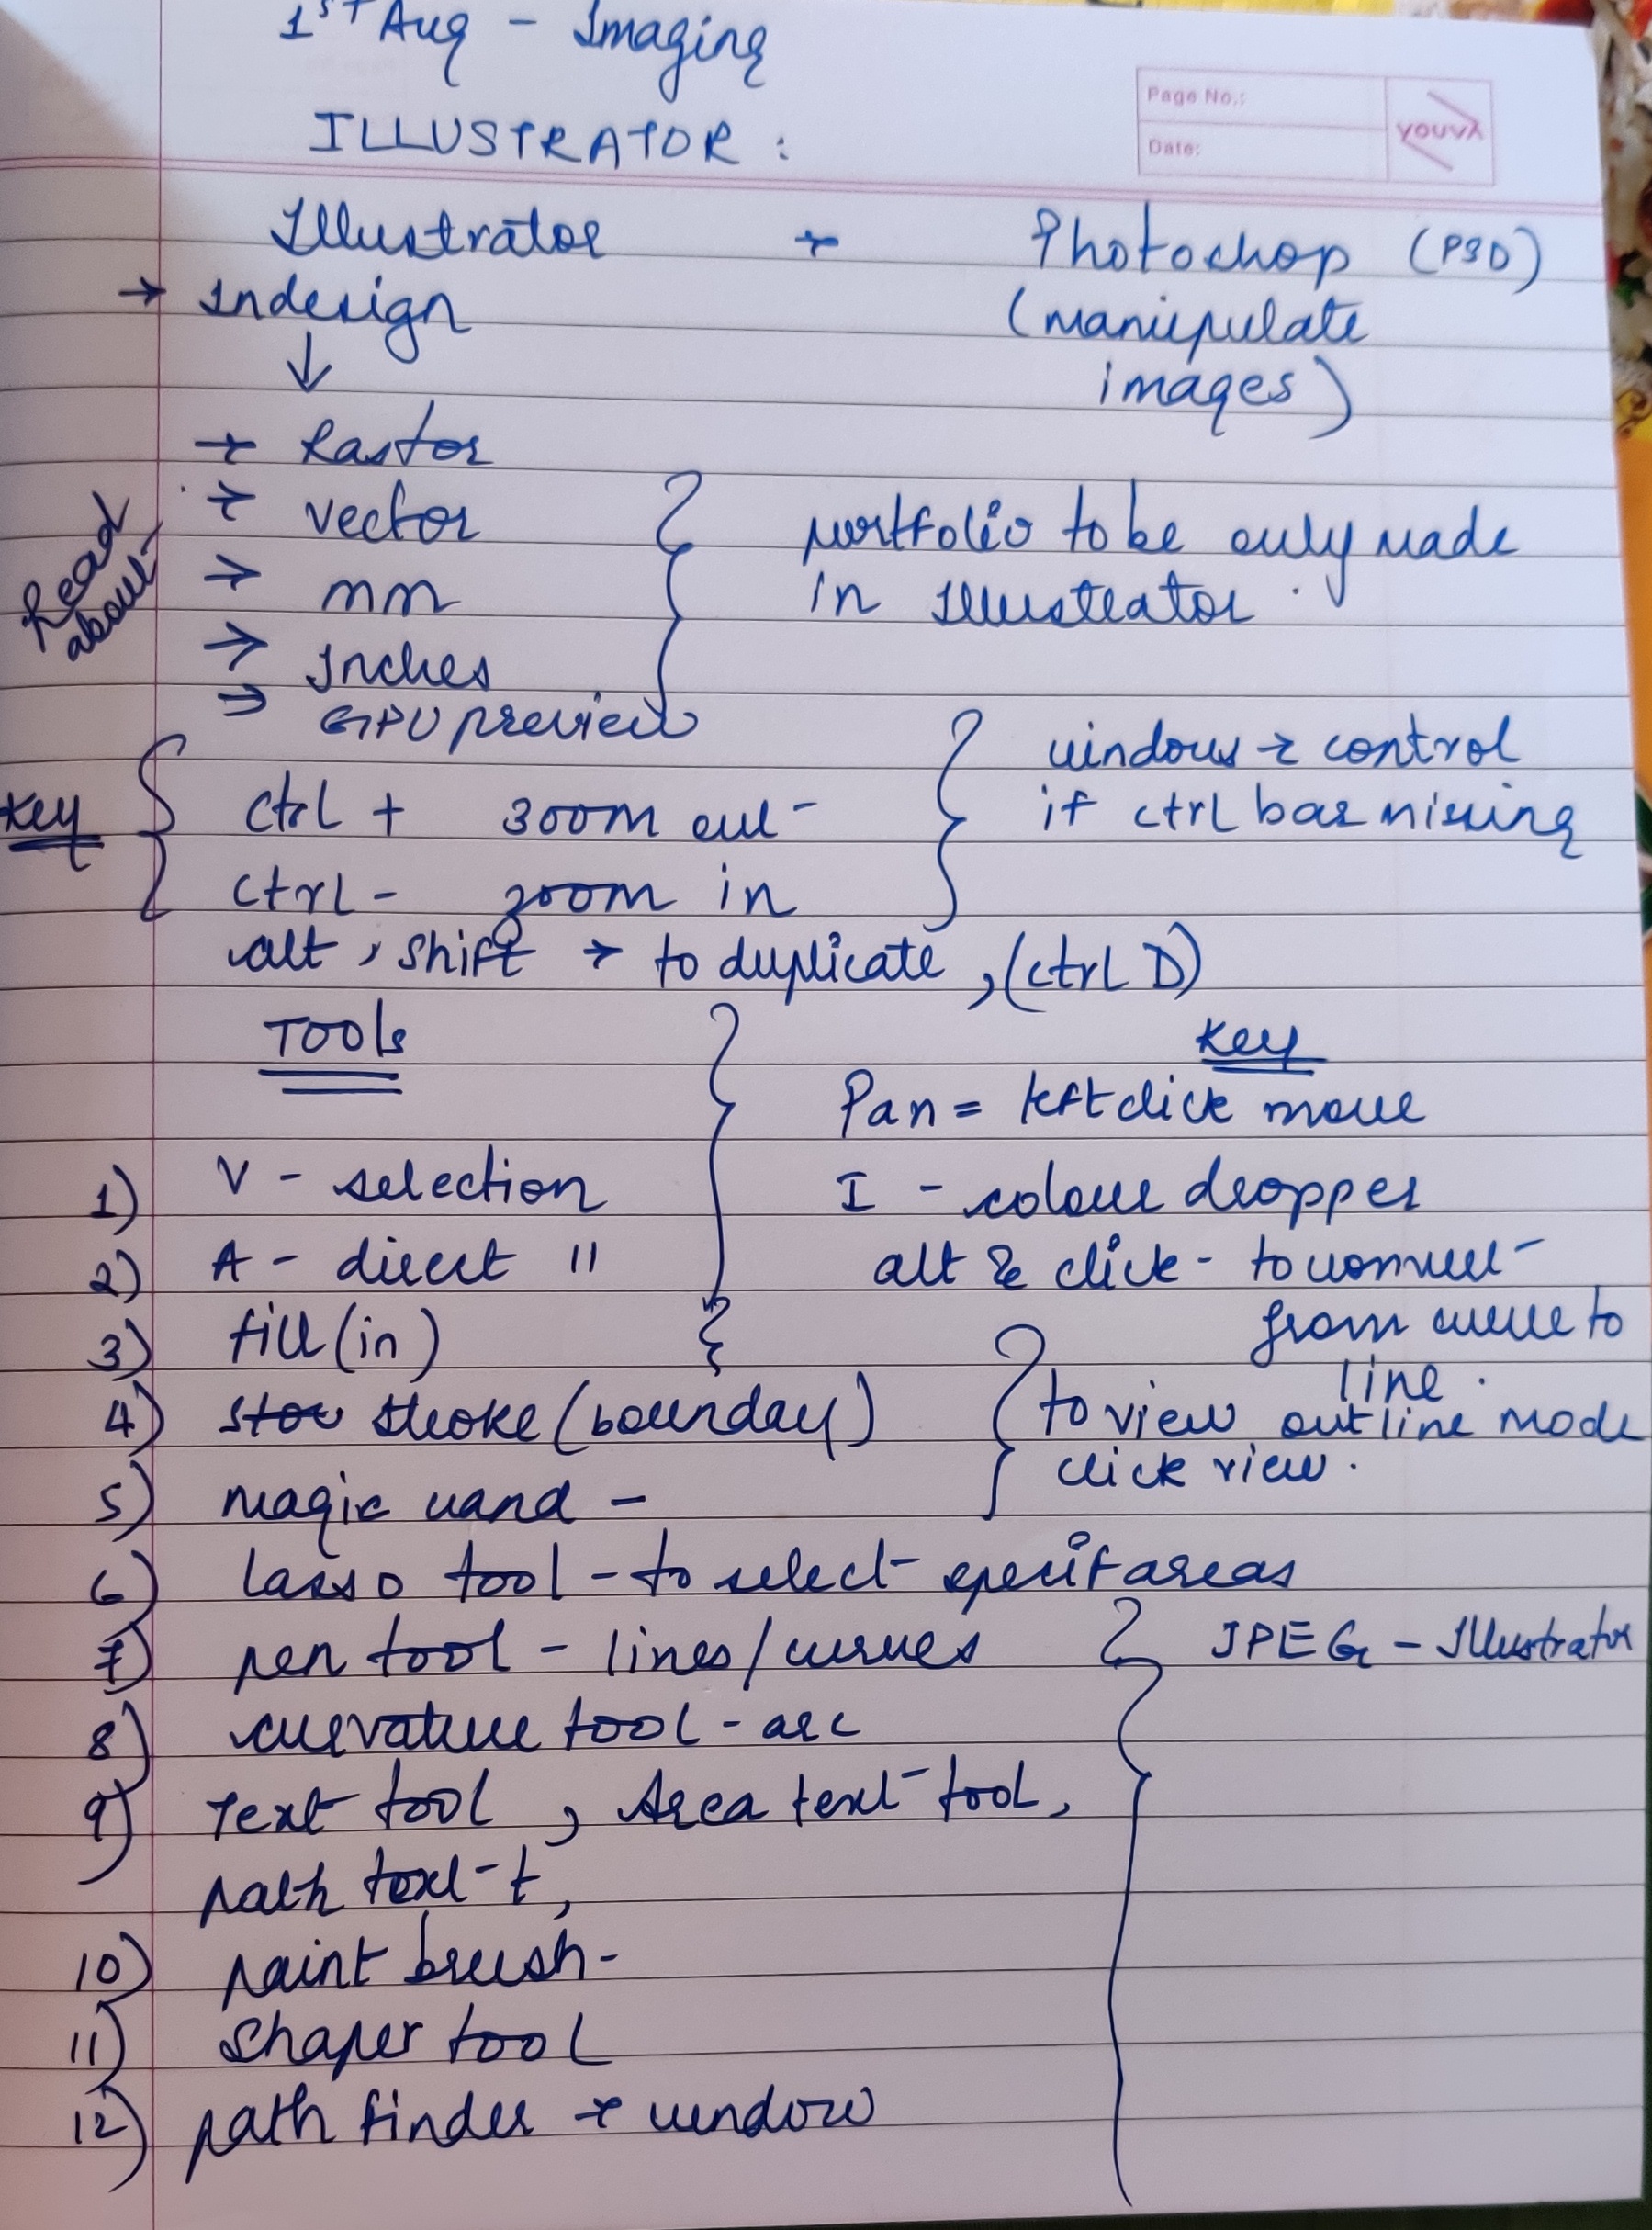 1ST Aug - Imaging
ILLUSTRATOR :
Page No.:
Date:
youva
Illustrator → Photoshop (PSD)
→ Indesign (manipulate
↓ images)
→ Rastor
→ vector
→ mm
→ Inches
⇒ GPU preview
Read
about
portfolio to be only made
in Illustrator.
Key
ctrl + zoom out
ctrl - zoom in
windows → control
if ctrl bar missing
alt, shift → to duplicate, (ctrl D)
TOOls
Key
Pan = left click move
1) V - selection
I - colour dropper
2) A - direct "
alt & click - to convert
from curve to
line.
3) fill (in)
4) stroke (bounday)
to view outline mode
click view.
5) magic wand -
6) lasso tool - to select specif areas
7) pen tool - lines/curves
JPEG - Illustrator
8) curvature tool - arc
9) Text tool, Area text tool,
path text t,
10) paint brush -
11) shaper tool
12) path finder → window